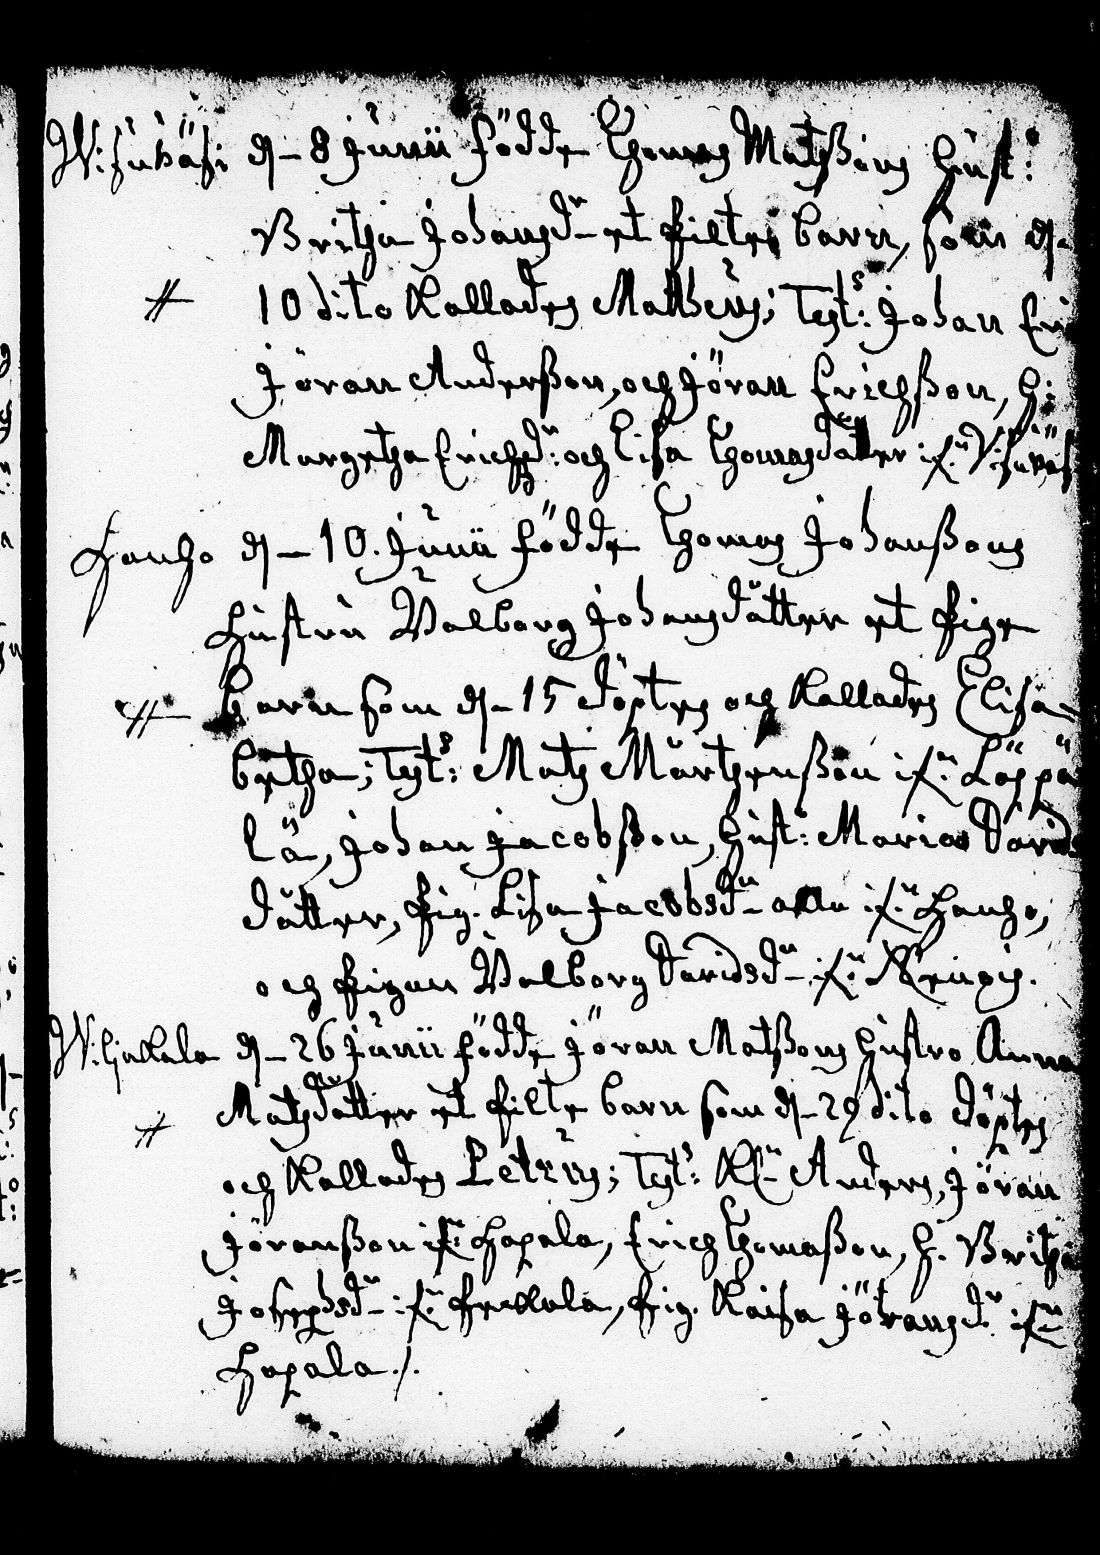 d. 8 Junii Födde Thomas Matßons Hust:
Britha Johansdr et Pilte barn, som d.
10 dito Kallades Mathæus; Test: Johan Eri
Jöran Anderßon, och Jöran Erichßon, H:
Margetha Erichsd: och Lisa Thomasdotter ifr.
Hanho d. 10. Junii Födde Thomas Johanßons
Hustru Valborg Johansdåtter et Pige
barn som d. 15 döptes och Kallades Elisa-
betha; Test: Matz Mårthenßon ifr.
lä, Johan Jacobßon, Hust: Maria Davids
dåtter, Pig. Lisa Jacobsdr alla ifr. Hanho,
och Pigan Valborg Davidsdr ifr.
Wiljakkala d. 26 Junii Födde Jöran Matßons Hustro Anna
Matzdotter et Pilte barn som d. 29 dito döptes
och Kallades Petrus; Test: Anders, Jöran
Jöranßon ifr. Hapala, Erich Thomaßon, H. Britha
Josephsdr ifr. Pig. Kaisa Jöransdr ifr
Hapala./.